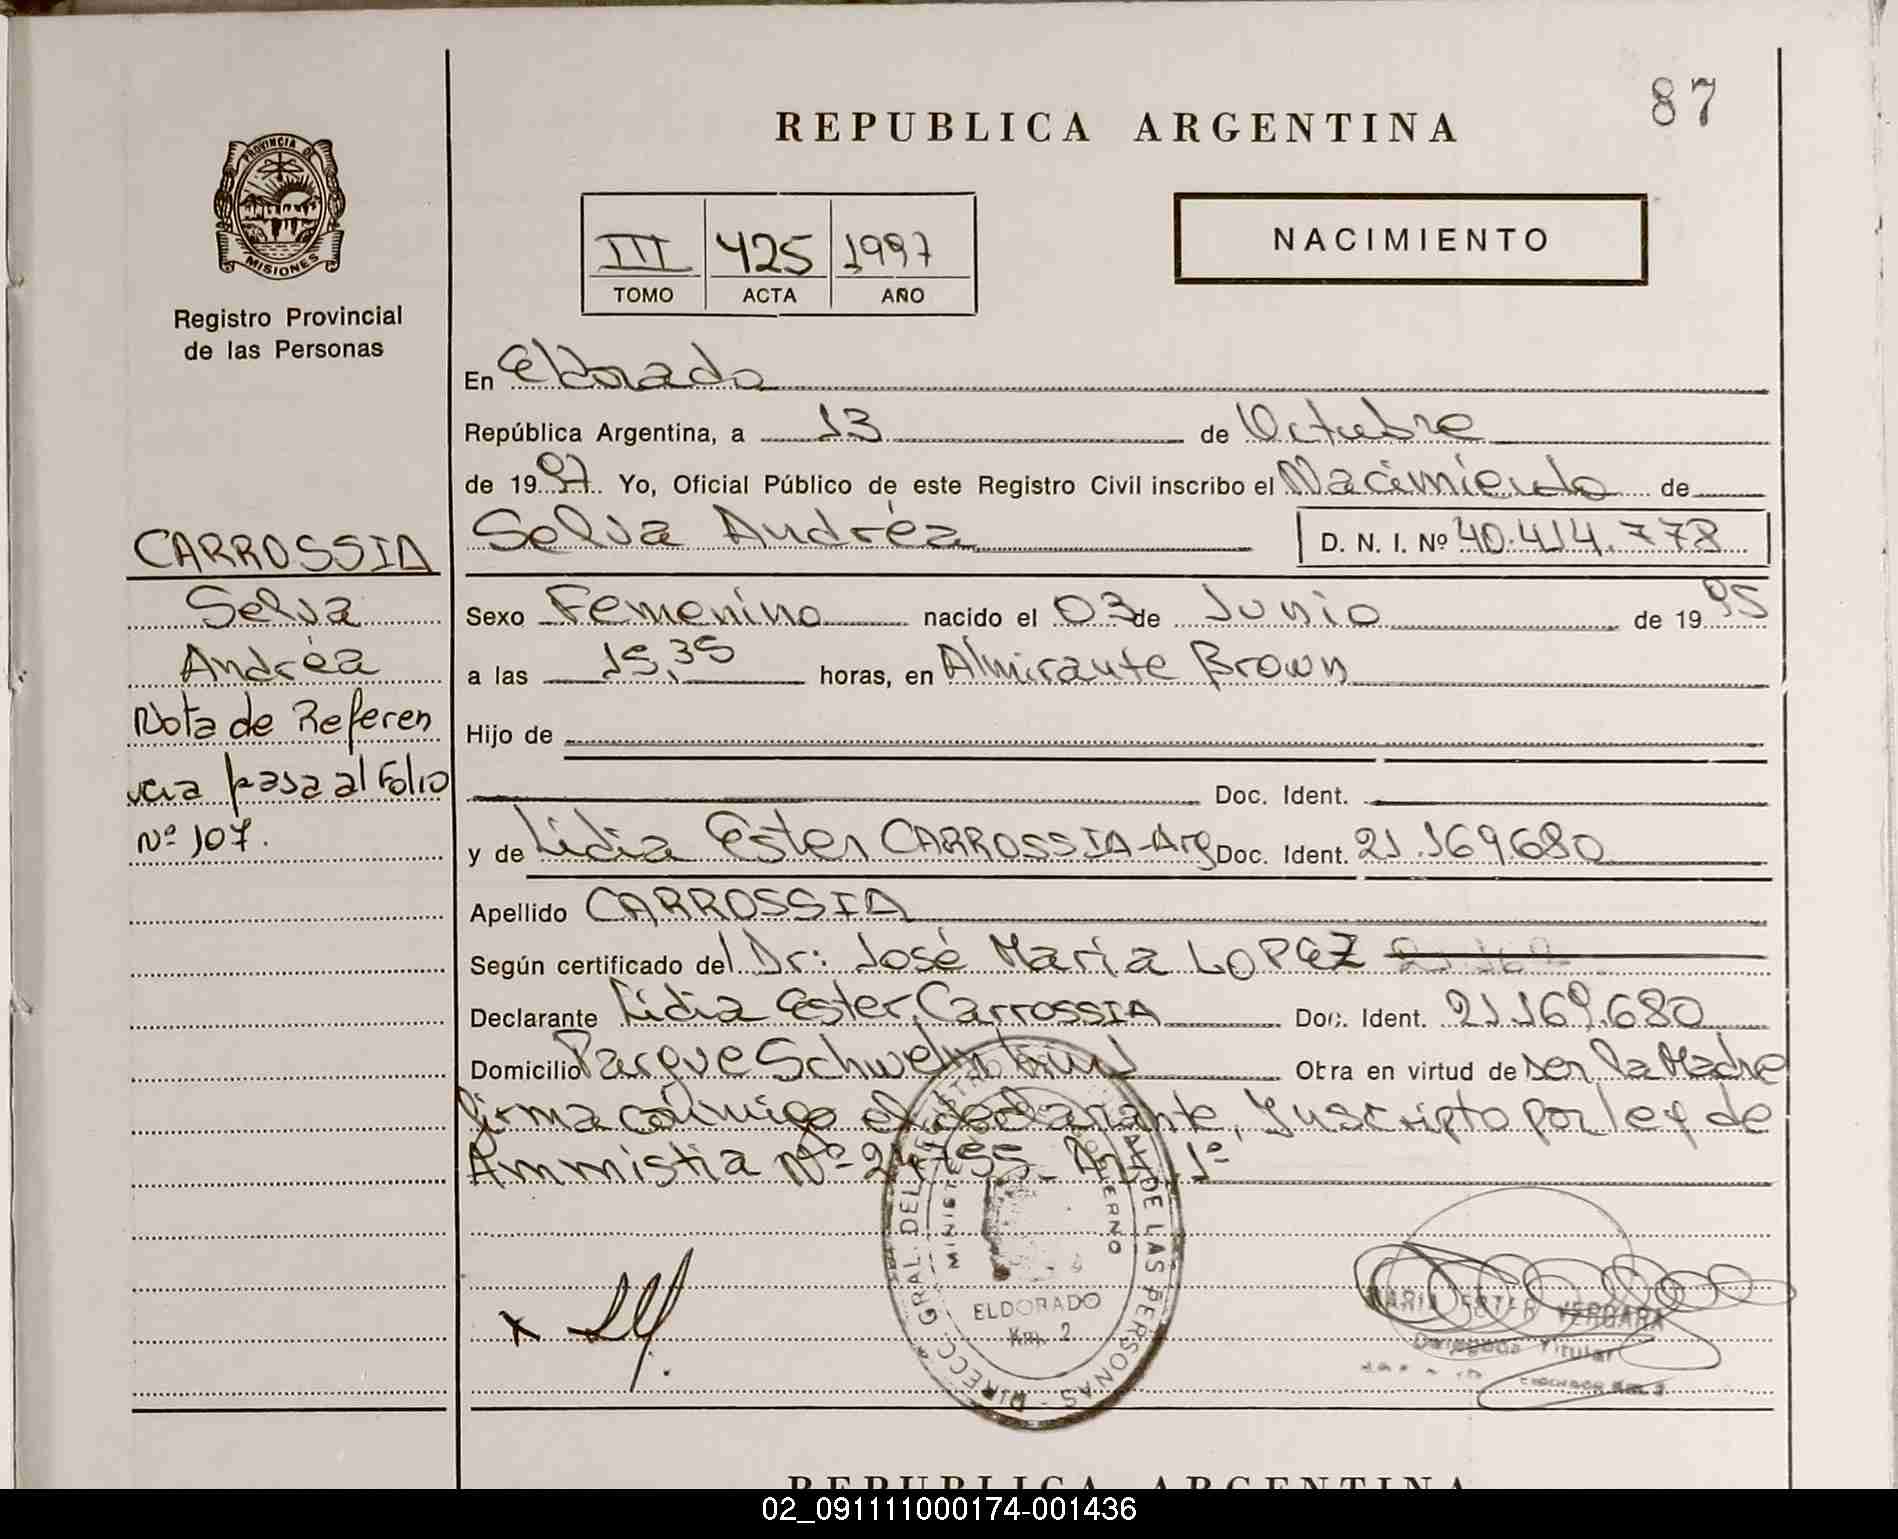 87
REPUBLICA ARGENTINA
PROVINCIA DE
MISIONES
Registro Provincial
de las Personas
III 425 1997
TOMO ACTA AÑO
NACIMIENTO
En Eldorado
República Argentina, a 13 de Octubre
de 1997. Yo, Oficial Público de este Registro Civil inscribo el Nacimiento de
Selva Andréa D. N. I. Nº 40.414.778
CARROSSIA
Selva
Andréa
Nota de Referen
cia pasa al Folio
Nº 107.
Sexo Femenino nacido el 03 de Junio de 1995
a las 15,35 horas, en Almirante Brown
Hijo de
Doc. Ident.
y de Lidia Ester CARROSSIA-Arg Doc. Ident. 21.169.680
Apellido CARROSSIA
Según certificado del Dr: José María LOPEZ
Declarante Lidia Ester Carrossia Doc. Ident. 21.169.680
Domicilio Parque Schwelm Obra en virtud de ser la Madre
firma conmigo el declarante, Inscripto por ley de
Ammistia Nº 24.755. Art 1º
DIRECC. GRAL. DEL REGISTRO DE LAS PERSONAS
MINISTE GOBIERNO
ELDORADO
Km. 2
x
MARIA ESTER VERGARA
Delegada Titular
REPUBLICA ARGENTINA
02_091111000174-001436